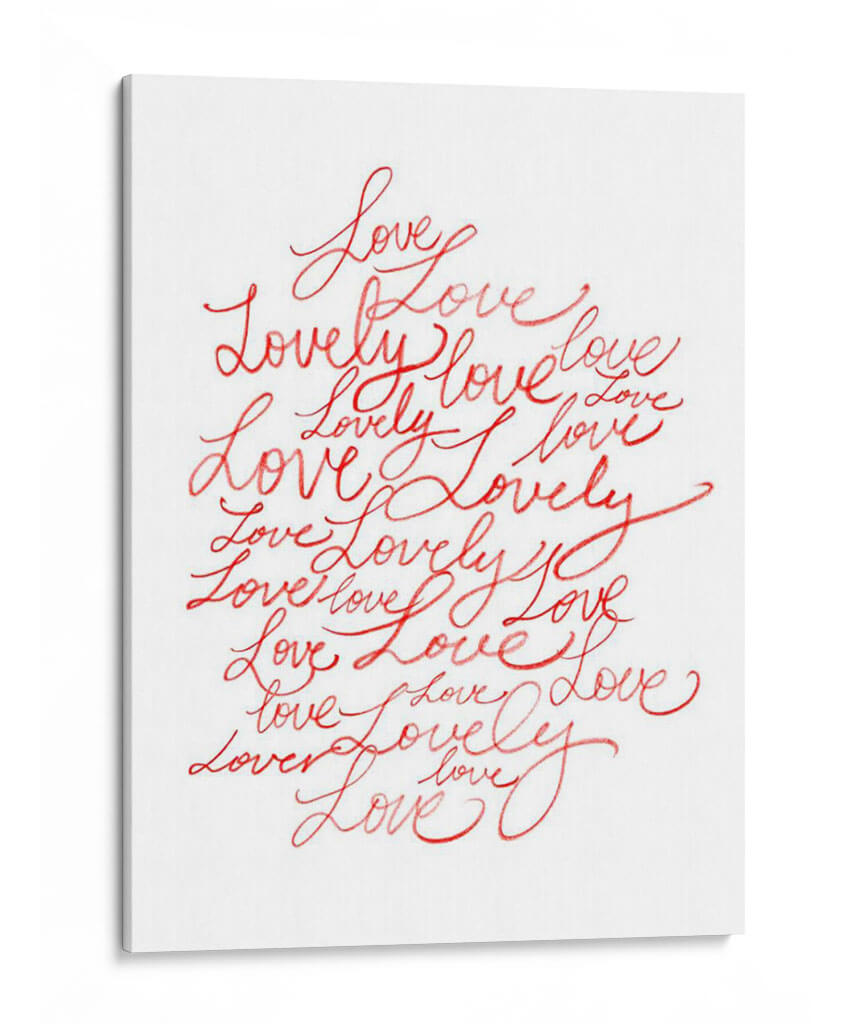 Love
Love
Lovely love love
Lovely Love
Love love
Lovely
Love Lovely
Love love Love
Love Love
Love
love Love
Lovely
Lover love
Love